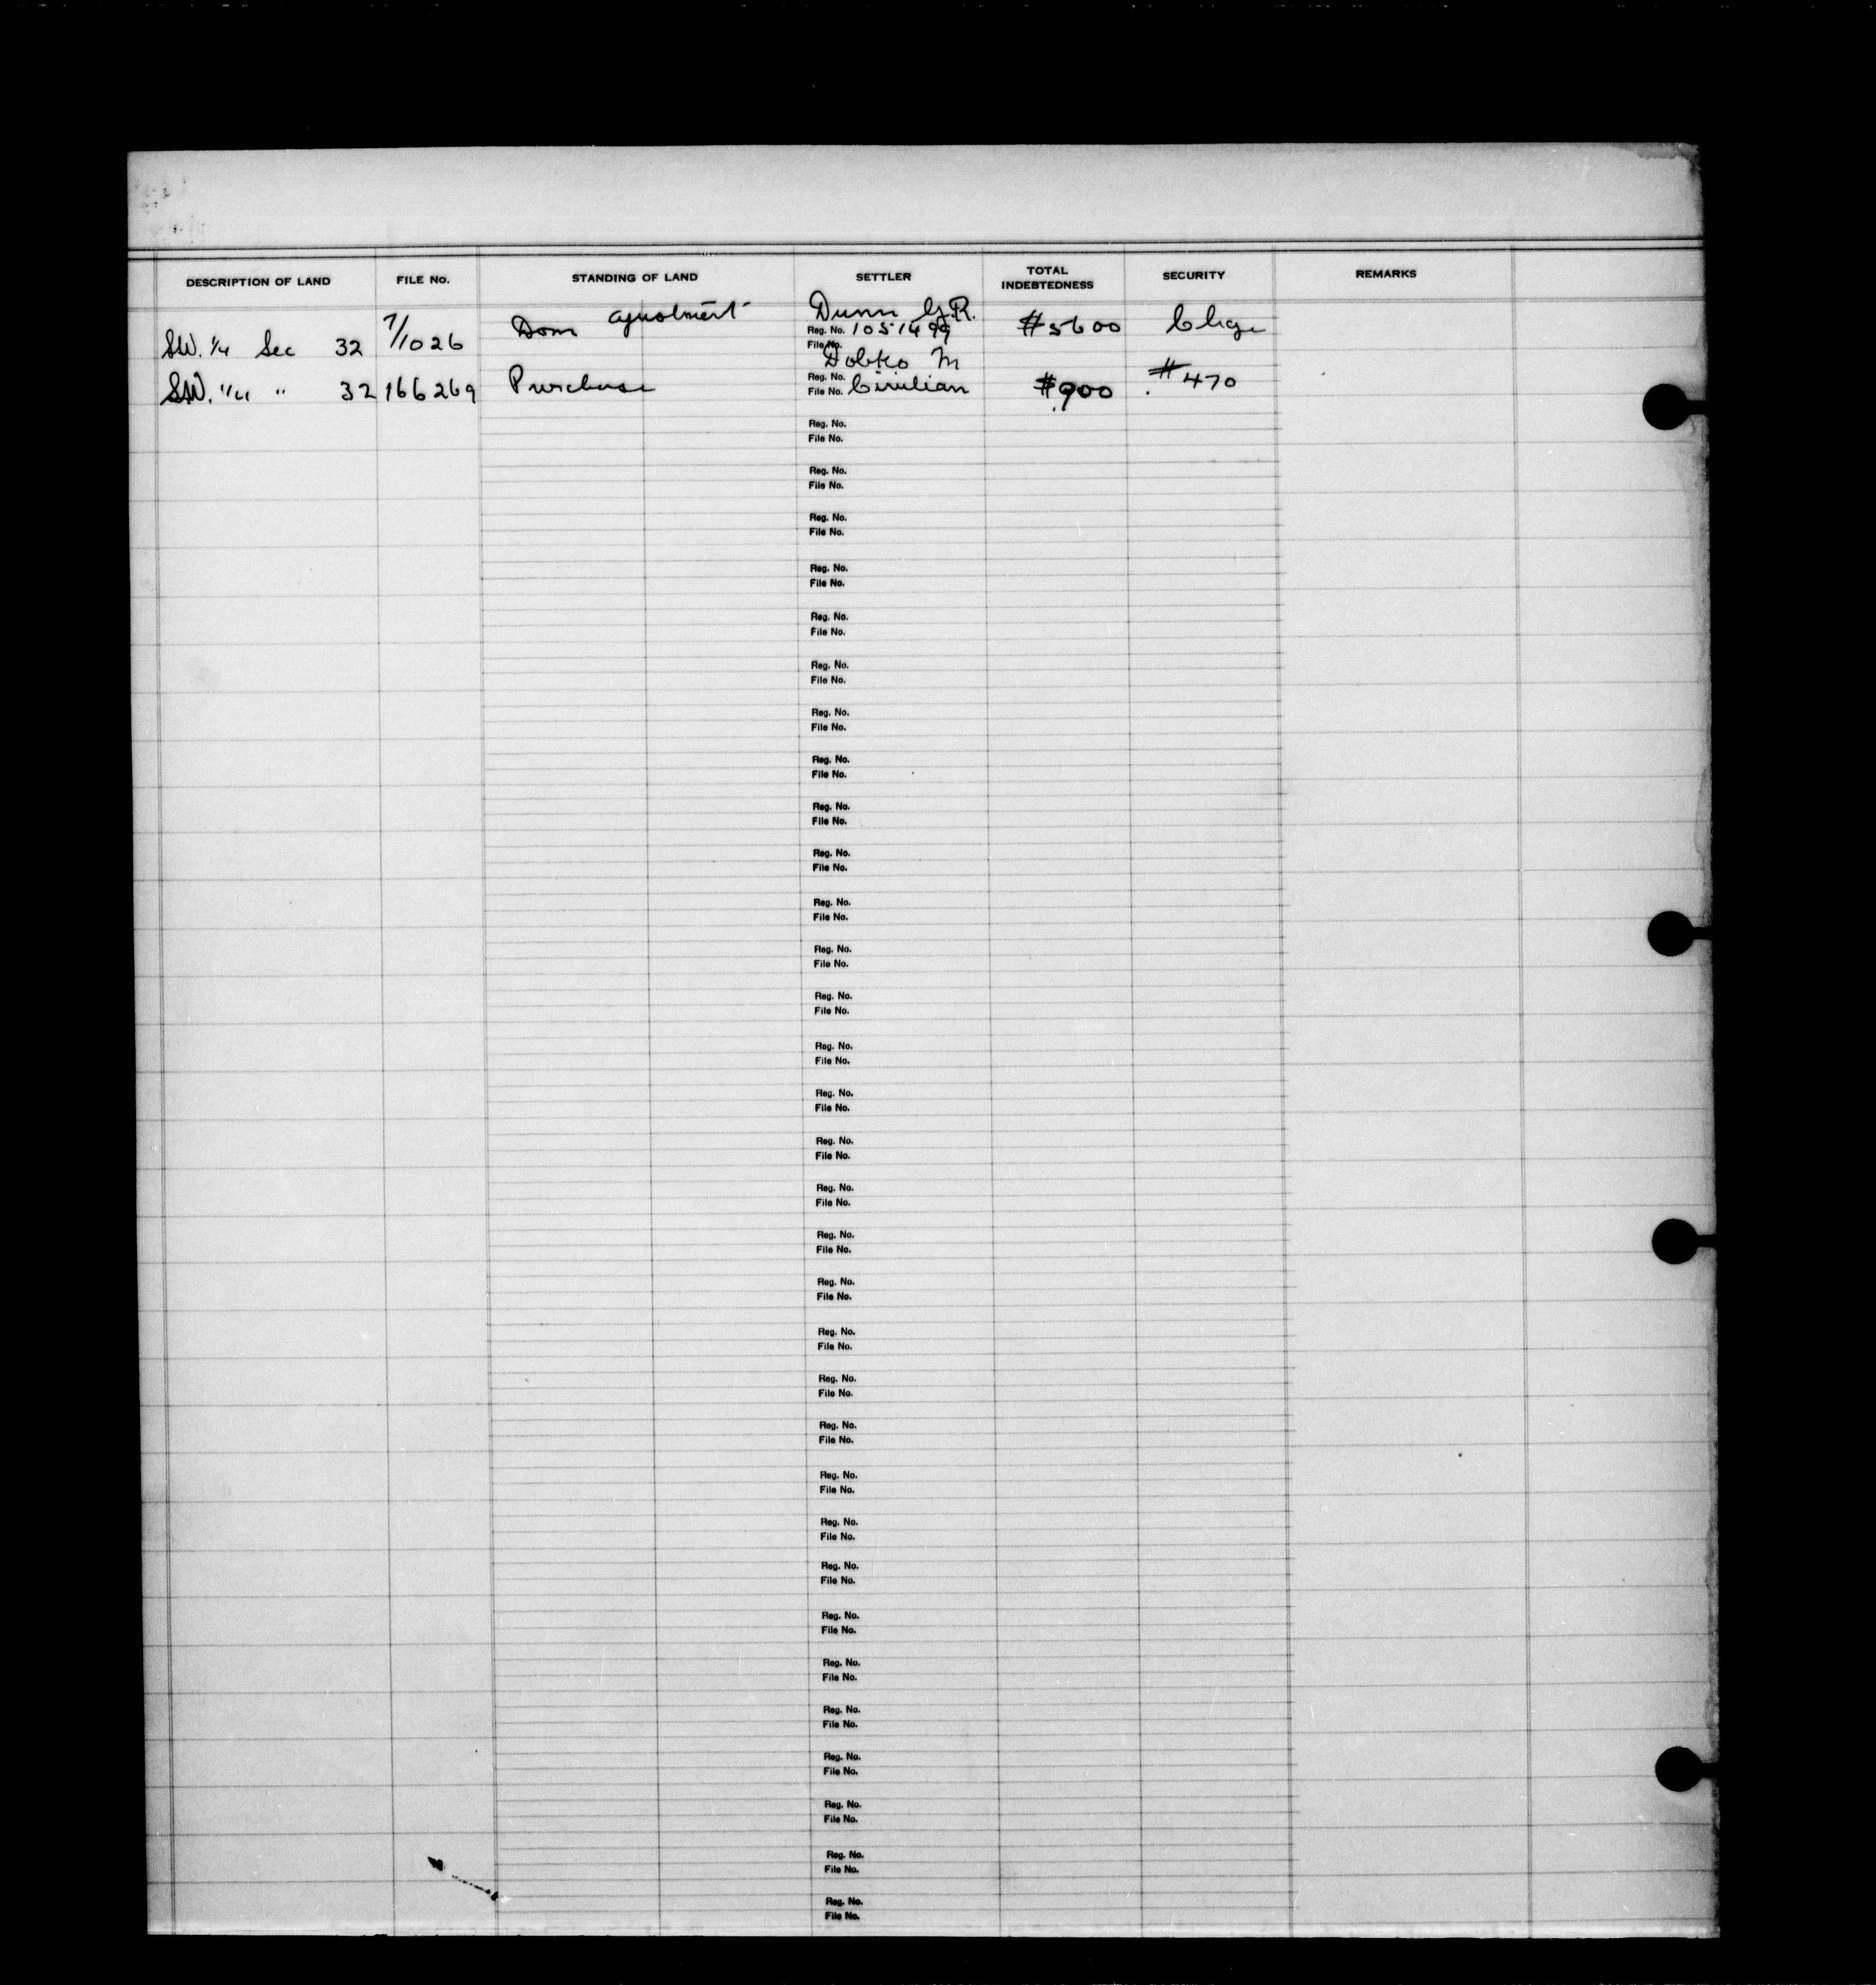 DESCRIPTION OF LAND FILE No. STANDING OF LAND SETTLER TOTAL INDEBTEDNESS SECURITY REMARKS
Dunn G.R.
SW. 1/4 Sec 32 7/1026 Dom ajustment Reg. No. 1051499 $5600 Chge
File No.
Dobko M
Reg. No.
SW. 1/4 " 32 166269 Purchase File No. Civilian $900 $470
Reg. No.
File No.
Reg. No.
File No.
Reg. No.
File No.
Reg. No.
File No.
Reg. No.
File No.
Reg. No.
File No.
Reg. No.
File No.
Reg. No.
File No.
Reg. No.
File No.
Reg. No.
File No.
Reg. No.
File No.
Reg. No.
File No.
Reg. No.
File No.
Reg. No.
File No.
Reg. No.
File No.
Reg. No.
File No.
Reg. No.
File No.
Reg. No.
File No.
Reg. No.
File No.
Reg. No.
File No.
Reg. No.
File No.
Reg. No.
File No.
Reg. No.
File No.
Reg. No.
File No.
Reg. No.
File No.
Reg. No.
File No.
Reg. No.
File No.
Reg. No.
File No.
Reg. No.
File No.
Reg. No.
File No.
Reg. No.
File No.
Reg. No.
File No.